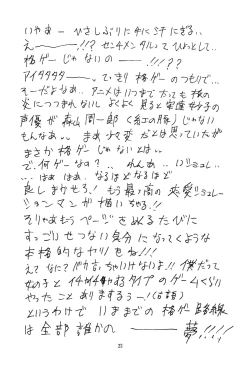 いやぁー ひさしぶりに手に汗にぎる、、
え―――!!? センチメンタルってひょっとして、
格ゲーじゃないの――.!!!??
アイタタタ―――。てっきり格ゲーのつもりで…
そーだよなぁ.. アニメはいつまで
炎につつまれないし よくよく 見ると
声優が 森山周一郎 (紅の豚) じゃない
もんなぁ。。 まぁ 少々変 だとは思っていたが
まさか 格ゲーじゃないとは。。
で、何ゲーなの? 。。れんあ、、いシミュレ、、
…はぁ はぁ、なるほどなるほど
良しまかせろ! もう最高の 恋愛シミュレー
ションマンガ描いちゃる!!
そりゃぁもう ページをめくるたびに
すっごいせつない気分になってくような
本格的なヤツをね!!!
えてなに? バカ言っちゃいけないよ!! 僕だって
女の子と イチャイチャするタイプのゲームくらい
やったこと ありますもぅー!
というわけで いままでの 格ゲー路線
は 全部 誰かの ―――― 夢!!!!
23